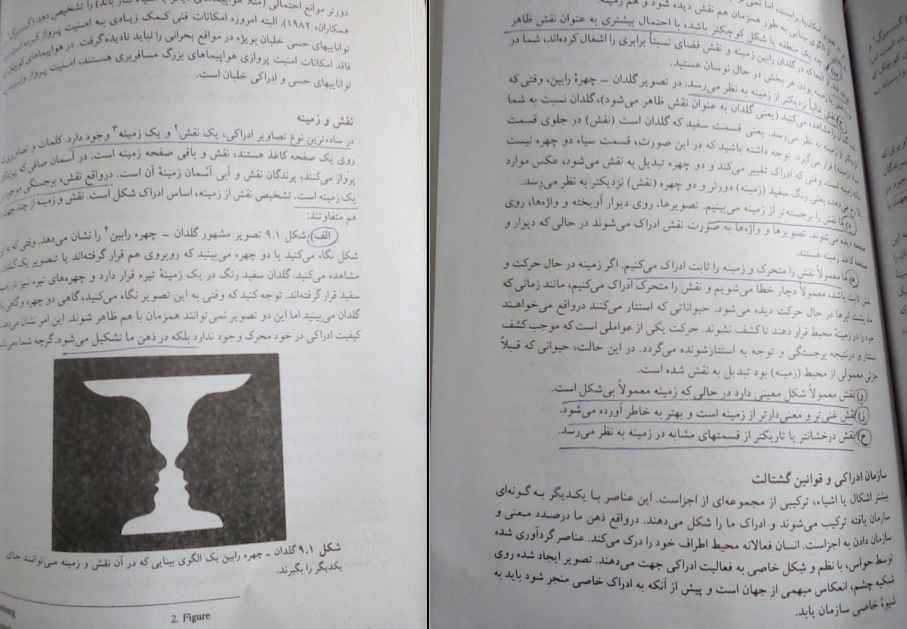 دورتر موانع احتمالی (مثلاً هواپیماهای دیگر
همکاران، ۱۹۸۲). البته امروزه امکانات فنی کمک زیادی به امنیت پرواز کرده
تواناییهای حسی خلبان بویژه در مواقع بحرانی را نباید نادیده گرفت. در هواپیماهای
فاقد امکانات امنیت پروازی هواپیماهای بزرگ مسافربری هستند، امنیت پرواز
تواناییهای حسی و ادراکی خلبان است.
نقش و زمینه
در ساده‌ترین نوع تصاویر ادراکی، یک نقش۲ و یک زمینه۳ وجود دارد. کلمات و تصاویری
روی یک صفحه کاغذ هستند، نقش و باقی صفحه زمینه است. در آسمان صافی که
پرواز می‌کنند، پرندگان نقش و آبی آسمان زمینهٔ آن است. درواقع نقش، برجستگی
یک زمینه است. تشخیص نقش از زمینه، اساس ادراک شکل است. نقش و زمینه از چند
هم متفاوتند:
الف) شکل ۹.۱ تصویر مشهور گلدان - چهره رابین۴ را نشان می‌دهد. وقتی که
شکل نگاه می‌کنید یا دو چهره می‌بینید که روبروی هم قرار گرفته‌اند یا تصویر یک
مشاهده می‌کنید. گلدان سفید رنگ در یک زمینهٔ تیره قرار دارد و چهره‌های تیره نیز در
سفید قرار گرفته‌اند. توجه کنید که وقتی به این تصویر نگاه می‌کنید، گاهی دو چهره و گاهی
گلدان می‌بینید اما این دو تصویر نمی‌توانند همزمان با هم ظاهر شوند. این امر نشان
کیفیت ادراکی در خود محرک وجود ندارد بلکه در ذهن ما تشکیل می‌شود گرچه شما
شکل ۹.۱ گلدان - چهره رابین یک الگوی بینایی که در آن نقش و زمینه می‌توانند جای
یکدیگر را بگیرند.
2. Figure
الگوی بینایی به طور همزمان هم نقش دیده شود و هم زمینه.
یک منطقه یا شکل کوچکتر باشد، با احتمال بیشتری به عنوان نقش ظاهر
در گلدان رابین زمینه و نقش فضای نسبتاً برابری را اشغال کرده‌اند، شما در
زمینه بودن هر بخش در حال نوسان هستید.
نقش غالباً نزدیکتر از زمینه به نظر می‌رسد. در تصویر گلدان - چهرهٔ رابین، وقتی که
را مشاهده می‌کنید (یعنی گلدان به عنوان نقش ظاهر می‌شود)، گلدان نسبت به شما
به نظر می‌رسد. یعنی قسمت سفید که گلدان است (نقش) در جلوی قسمت
(زمینه) قرار می‌گیرد. توجه داشته باشید که در این صورت، قسمت سیاه دو چهره نیست
زمینه است. وقتی که ادراک تغییر می‌کند و دو چهره تبدیل به نقش می‌شود، عکس موارد
می‌دهد، یعنی رنگ سفید (زمینه) دورتر و دو چهره (نقش) نزدیکتر به نظر می‌رسد.
د) نقش را برجسته‌تر از زمینه می‌بینیم. تصویرها، روی دیوار آویخته و واژه‌ها، روی
صفحه دیده می‌شوند. تصویرها و واژه‌ها به صورت نقش ادراک می‌شوند در حالی که دیوار و
صفحه کاغذ زمینه هستند.
ه) ما معمولاً نقش را متحرک و زمینه را ثابت ادراک می‌کنیم. اگر زمینه در حال حرکت و
نقش ثابت باشد، معمولاً دچار خطا می‌شویم و نقش را متحرک ادراک می‌کنیم، مانند زمانی که
ماه پشت ابرها در حال حرکت دیده می‌شود. حیواناتی که استتار می‌کنند درواقع می‌خواهند
خود را در زمینهٔ محیط قرار دهند تا کشف نشوند. حرکت یکی از عواملی است که موجب کشف
استتار و درنتیجه برجستگی و توجه به استتارشونده می‌گردد. در این حالت، حیوانی که قبلاً
جزئی معمولی از محیط (زمینه) بود تبدیل به نقش شده است.
و) نقش معمولاً شکل معینی دارد در حالی که زمینه معمولاً بی‌شکل است.
ز) نقش غنی‌تر و معنی‌دارتر از زمینه است و بهتر به خاطر آورده می‌شود.
ح) نقش درخشانتر یا تاریکتر از قسمتهای مشابه در زمینه به نظر می‌رسد.
سازمان ادراکی و قوانین گشتالت
بیشتر اشکال یا اشیاء، ترکیبی از مجموعه‌ای از اجزاست. این عناصر با یکدیگر به گونه‌ای
سازمان یافته ترکیب می‌شوند و ادراک ما را شکل می‌دهند. درواقع ذهن ما درصدد معنی و
سازمان دادن به اجزاست. انسان فعالانه محیط اطراف خود را درک می‌کند. عناصر گردآوری شده
توسط حواس، با نظم و شکل خاصی به فعالیت ادراکی جهت می‌دهند. تصویر ایجاد شده روی
شبکیه چشم، انعکاس مبهمی از جهان است و پیش از آنکه به ادراک خاصی منجر شود باید به
شیوهٔ خاصی سازمان یابد.